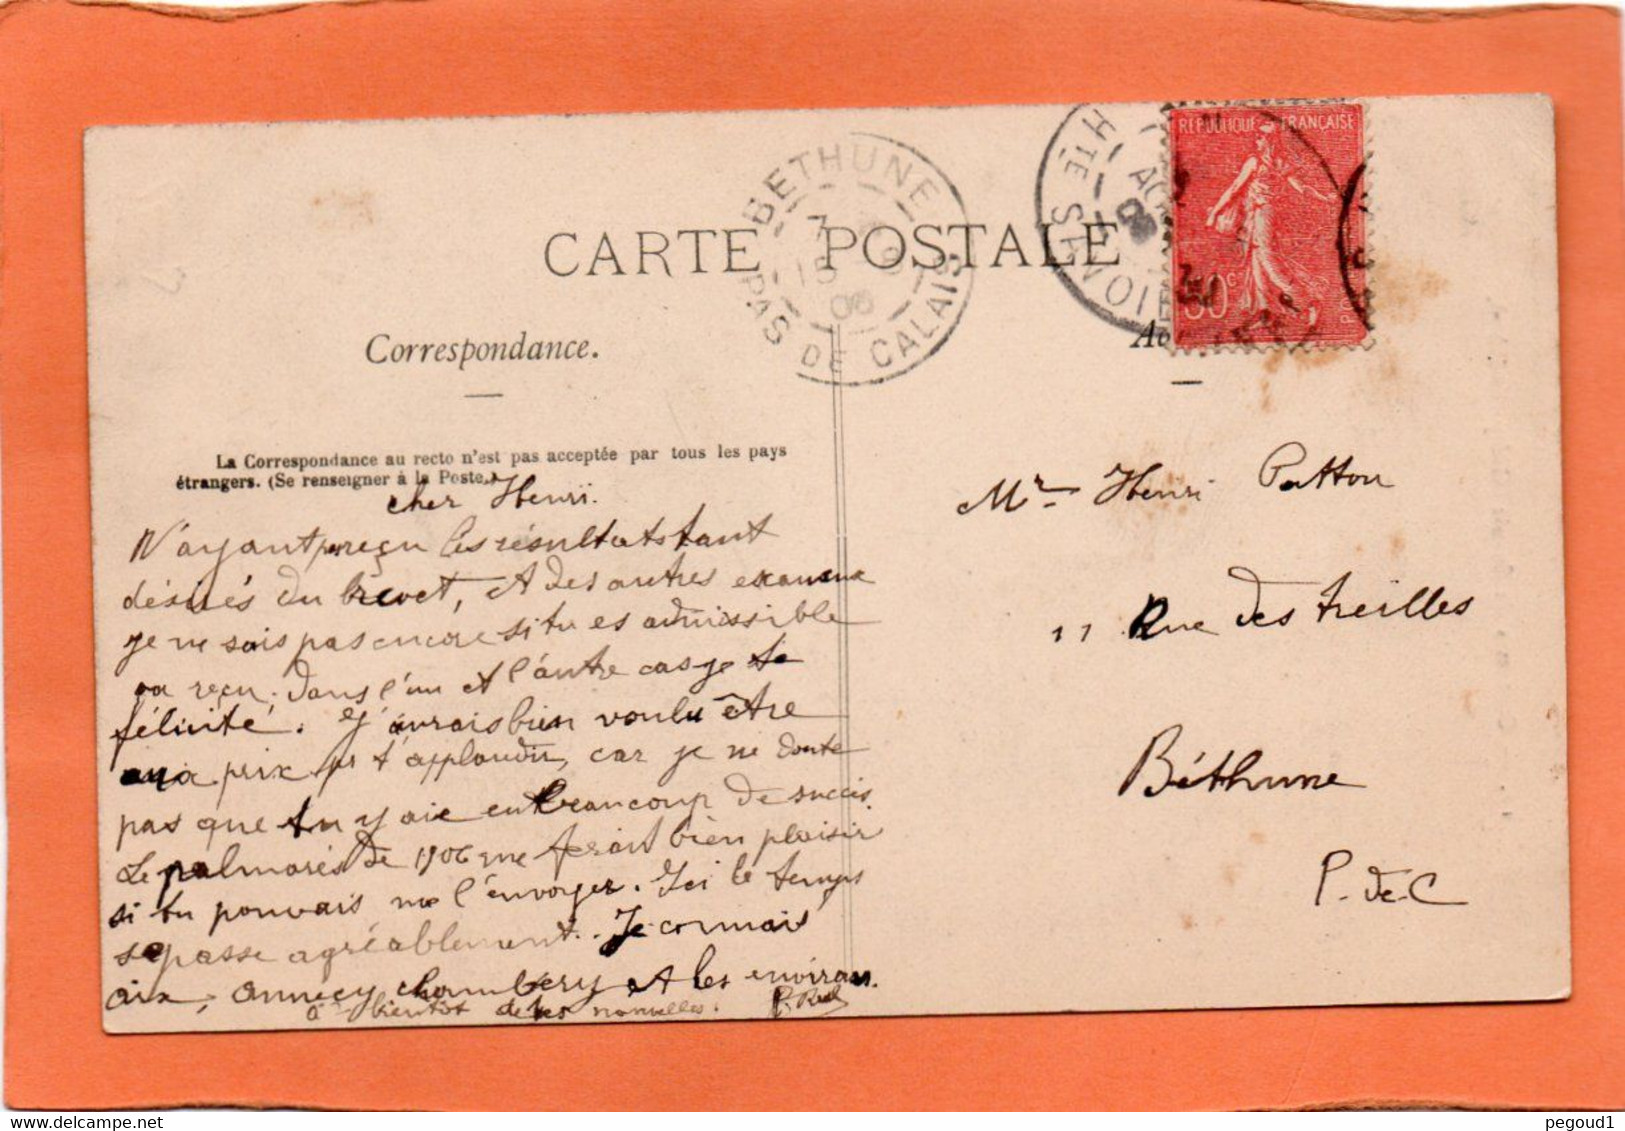 CARTE POSTALE
Correspondance.
La Correspondance au recto n'est pas acceptée par tous les pays
étrangers. (Se renseigner à la Poste.)
cher Henri.
N'ayant pas reçu les résultats tant
désirés du brevet, et des autres examens
je ne sais pas encore si tu es admissible
ou reçu; dans l'un et l'autre cas je te
félicité. J'aurais bien voulu être
aux prix pr t'applaudir, car je ne doute
pas que tu y aie eu beaucoup de succès.
Le palmarés de 1906 me ferait bien plaisir
si tu pouvais me l'envoyer. Ici le temps
se passe agréablement. Je connais
aix, annecy chambery et les environs.
à bientôt de tes nouvelles.
BETHUNE
PAS DE CALAIS
7
15
06
HTE SAVOIE
REPUBLIQUE FRANÇAISE
Mr Henri Patton
11 Rue des treilles
Béthune
P.-de-C
pegoud1